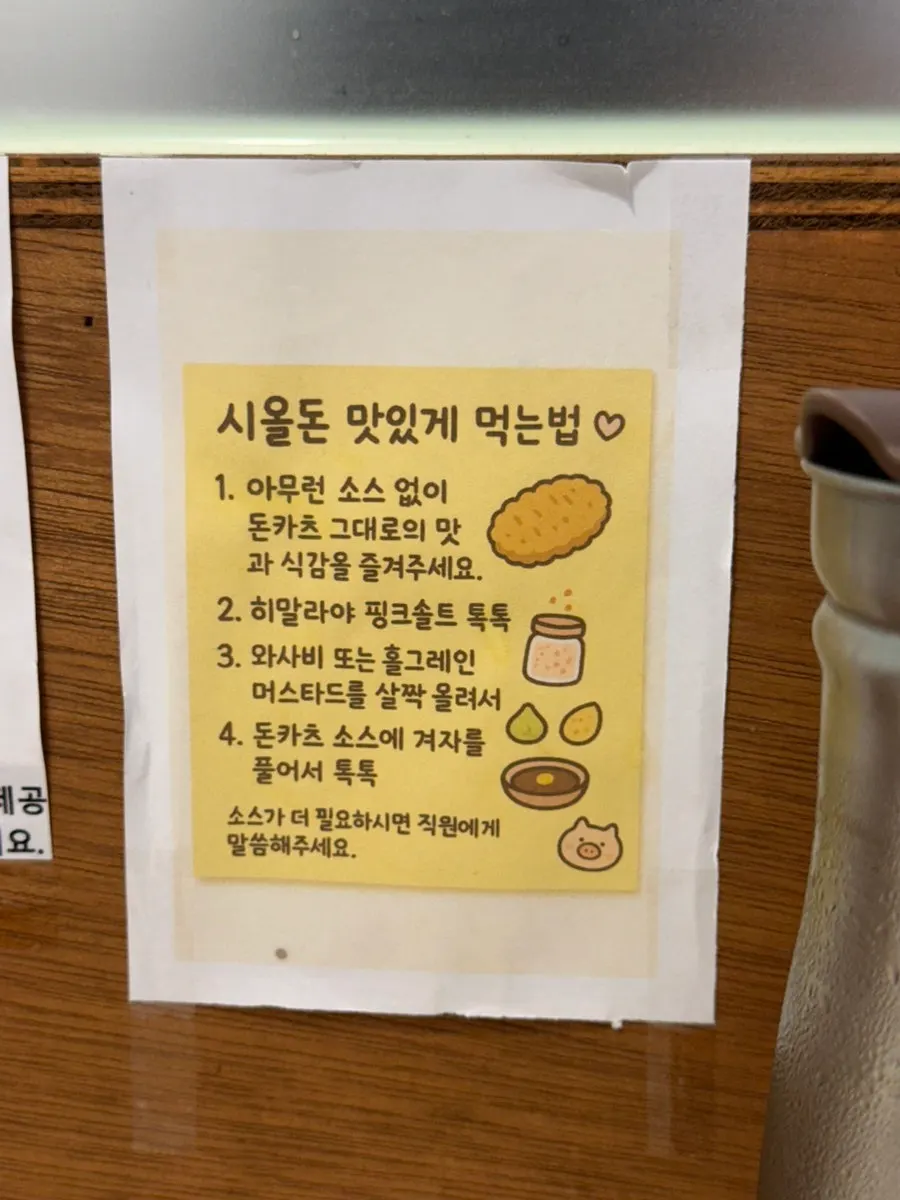 시올돈 맛있게 먹는법
1. 아무런 소스 없이
돈카츠 그대로의 맛
과 식감올 즐겨주세요.
2. 히말라야 핑크솔트 톡톡
3. 와사비 또는 홀그레인
머스타드를 살짝 올려서
4. 돈카츠 소스에 겨자를
풀어서 톡톡
소스가 더 필요하시면 직원에게
말씀해주세요.
제공
요.